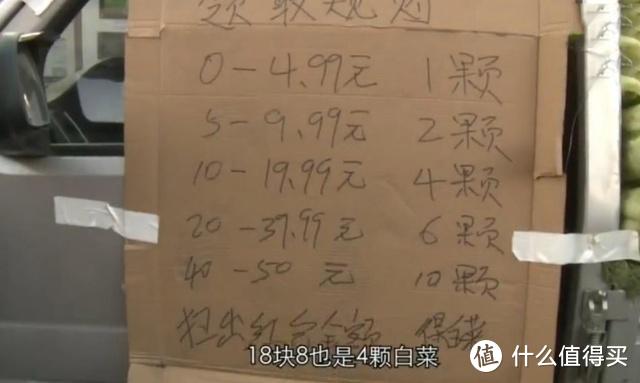 领取规则
0-4.99元 1颗
5-9.99元 2颗
10-19.99元 4颗
20-39.99元 6颗
40-50元 10颗
金额
18块8也是4颗白菜
值 什么值得买